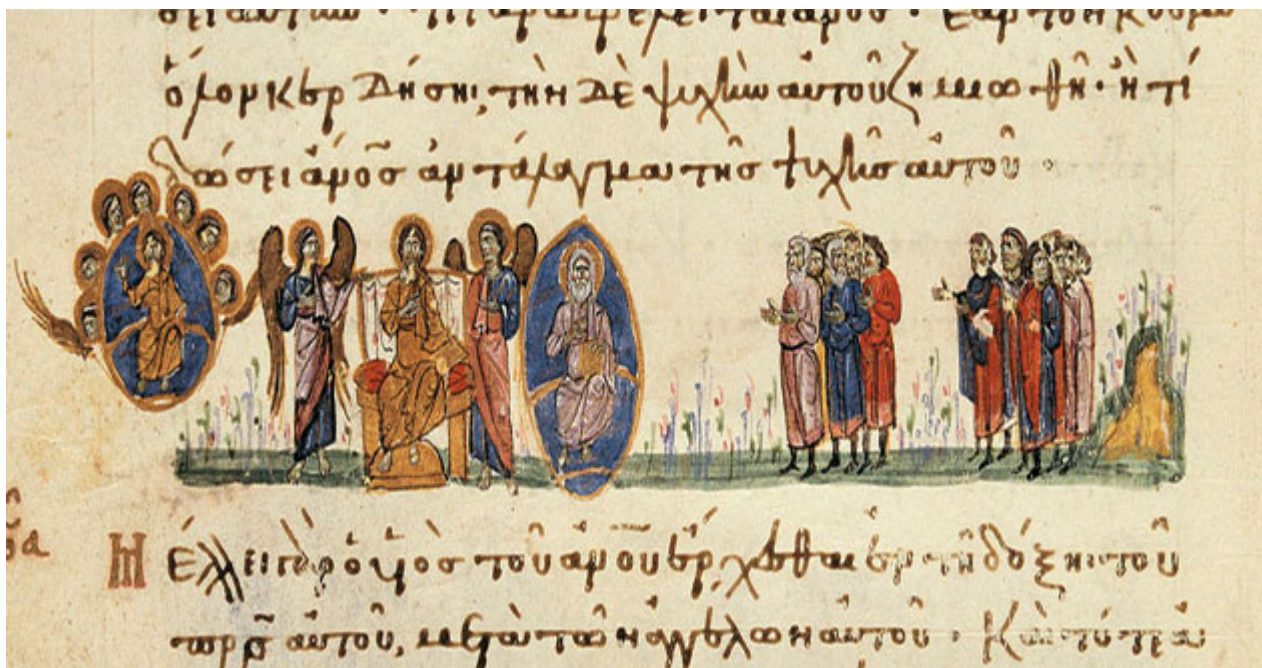 σει αὐτήν · τί γὰρ ὠφελεῖται ἄνος · ἐὰν τὸν κόσμον
ὅλον κερδήσηι, τὴν δὲ ψυχὴν αὐτοῦ ζημιωθῆ · ἢ τί
δώσει ἄνος ἀντάλαγμα τῆς ψυχῆς αὐτοῦ ·
Μέλλει γὰρ ὁ υἱὸς τοῦ ἀνου ἔρχεσθαι ἐν τῆ δόξηι τοῦ
πρς αὐτοῦ, μετὰ τῶν ἀγγέλων αὐτοῦ · Καὶ τότε ἀ